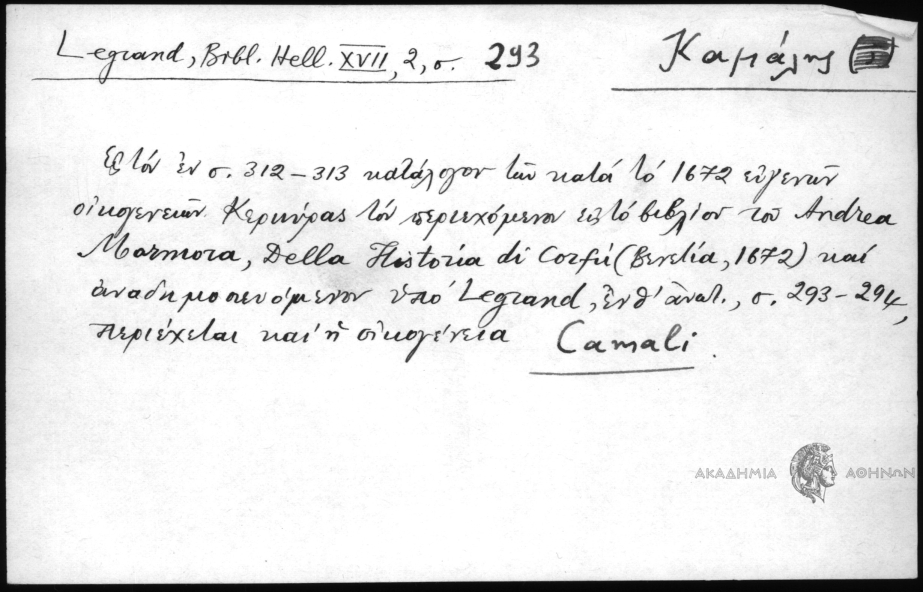 Legrand, Bibl. Hell. XVII, 2, σ. 293
Καμάλης
Εἰς τόν ἐν σ. 312-313 κατάλογον τῶν κατά τό 1672 εὐγενῶν
οἰκογενειῶν Κερκύρας τόν περιεχόμενον εἰς τό βιβλίον τοῦ Andrea
Marmora, Della Historia di Corfú (Βενετία, 1672) καί
ἀναδημοσιευόμενον ὑπό Legrand, ἔνθ' ἀνωτ., σ. 293-294,
περιέχεται καί ἡ οἰκογένεια Camali.
ΑΚΑΔΗΜΙΑ ΑΘΗΝΩΝ